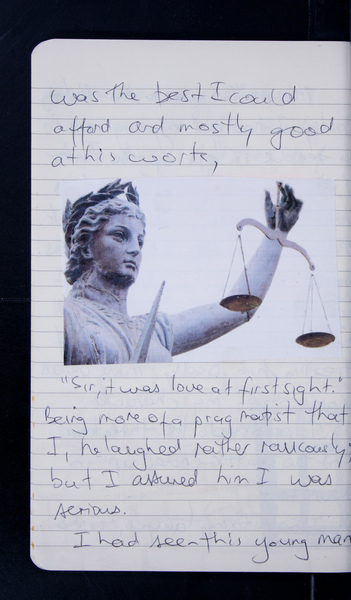 was the best I could
afford and mostly good
at his work,
"Sir, it was love at first sight."
Being more of a pragmatist that
I, he laughed rather raucously;
but I assured him I was
serious.
I had seen this young man